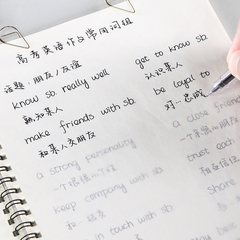 高考英语作文常用词组
话题：朋友/友谊
know sb. really well
熟知某人
make friends with sb.
和某人交朋友
a strong personality
一个很强的个性
keep company with sb.
in touch with sb.
get to know sb.
认识某人
be loyal to
对…忠诚
a close friend
trust each